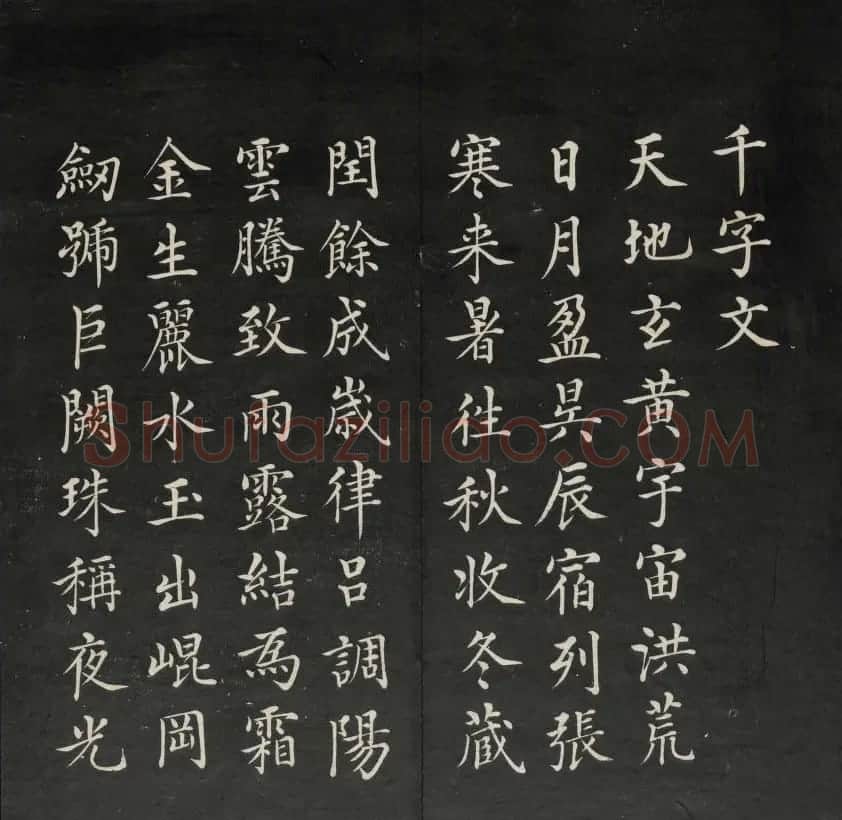 千字文
天地玄黄宇宙洪荒
日月盈昃辰宿列張
寒来暑往秋收冬蔵
閏餘成歳律呂調陽
雲騰致雨露結為霜
金生麗水玉出崐岡
劒號巨闕珠稱夜光
Shufazilido.COM